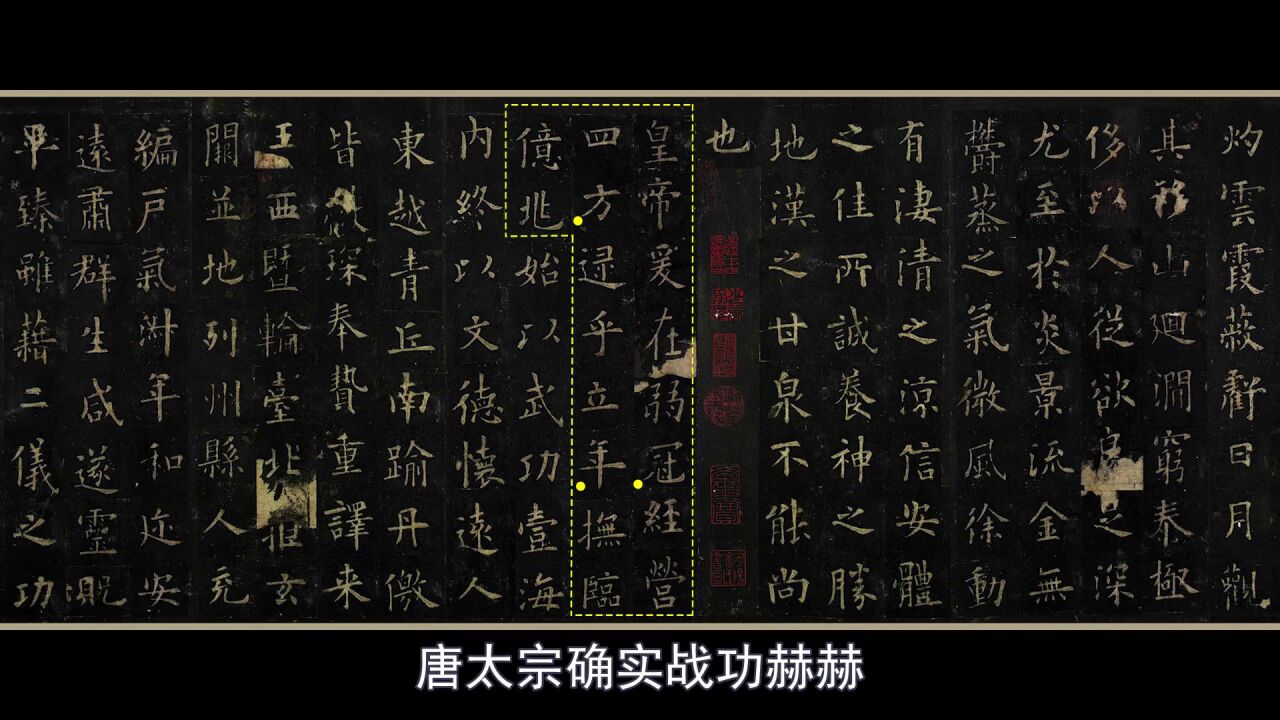 灼雲霞蔽虧日月觀
其移山廻澗窮泰極
侈以人從欲良足深
尤至於炎景流金無
欝蒸之氣微風徐動
有淒清之涼信安體
之佳所誠養神之勝
地漢之甘泉不能尚
也
皇帝爰在弱冠經營
四方逮乎立年撫臨
億兆始以武功壹海
內終以文德懷遠人
東越青丘南踰丹儌
皆獻琛奉贄重譯来
王西暨輪臺北拒玄
闕並地列州縣人充
編戶氣淑年和迩安
遠肅群生咸遂靈貺
畢臻雖藉二儀之功
唐太宗确实战功赫赫